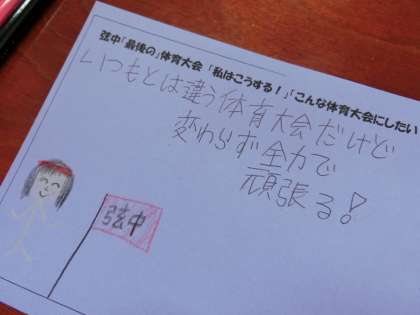 弦中「最後の」体育大会 「私はこうする！」「こんな体育大会にしたい
いつもとは違う体育大会だけど
変わらず全力で
頑張る！
弦中